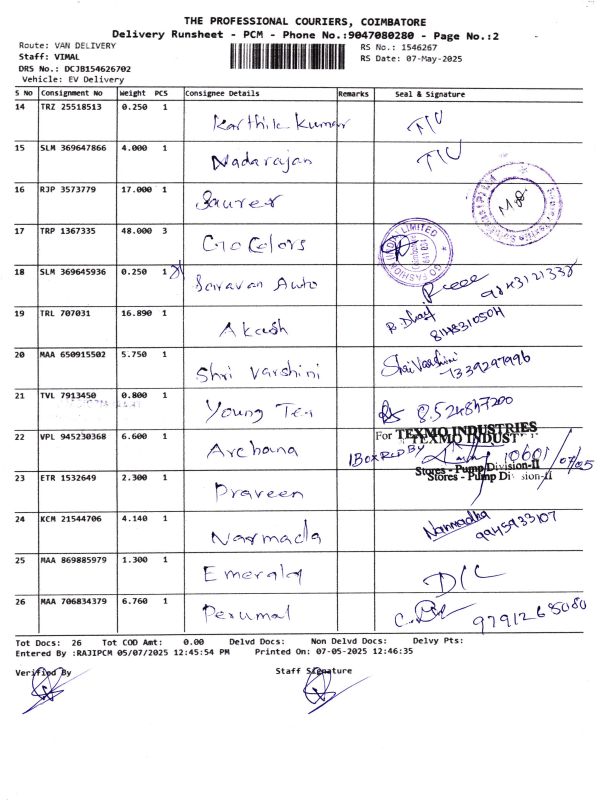 THE PROFESSIONAL COURIERS, COIMBATORE
Delivery Runsheet - PCM - Phone No.:9047080280 - Page No.:2
Route: VAN DELIVERY
RS No.: 1546267
Staff: VIMAL
RS Date: 07-May-2025
DRS No.: DCJB154626702
Vehicle: EV Delivery
S No Consignment No Weight PCS Consignee Details Remarks Seal & Signature
14 TRZ 25518513 0.250 1 Karthik Kumar
15 SLM 369647866 4.000 1 Nadarajan
16 RJP 3573779 17.000 1
17 TRP 1367335 48.000 3 Go Colors
GO FASHION (INDIA) LIMITED
18 SLM 369645936 0.250 1 Saravan Auto 9843121338
19 TRL 707031 16.890 1 Akash
20 MAA 650915502 5.750 1 Shri Varshini Shri Varshini 7339297996
21 TVL 7913450 0.800 1 Young Ten
For TEXMO INDUSTRIES
22 VPL 945230368 6.600 1 Archana 1 BOX RCD BY
Stores - Pump Division-II
23 ETR 1532649 2.300 1 Praveen
24 KCM 21544706 4.140 1 Narmada Narmadha 9945933107
25 MAA 869885979 1.300 1 Emerald D/C
26 MAA 706834379 6.760 1 Perumal
Tot Docs: 26 Tot COD Amt: 0.00 Delvd Docs: Non Delvd Docs: Delvy Pts:
Entered By :RAJIPCM 05/07/2025 12:45:54 PM Printed On: 07-05-2025 12:46:35
Verified By Staff Signature